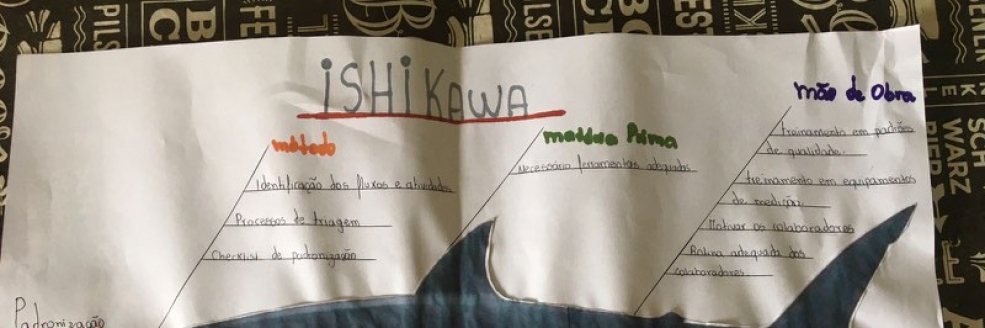 ISHIKAWA
método
Identificação dos fluxos e atividades
Processos de triagem
Checklist de padronização
Padronização
matéria Prima
Necessário ferramentas adequadas
mão de Obra
treinamento em padrões
de qualidade.
treinamento em equipamentos
de medição.
Motivar os colaboradores
Rotina adequada dos
colaboradores
PILS
BO
C
FEE
PILSE
BO
C
EST
SCH
WARZ
BIER